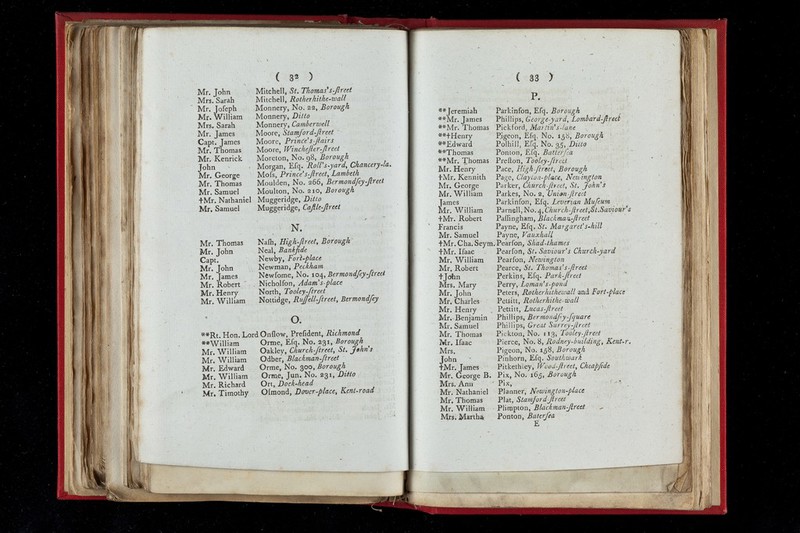 ( 32 )
Mr. John Mitchell, St. Thomas's-ſtreet
Mrs. Sarah Mitchell, Rotherhithe-wall
Mr. Joſeph Monnery, No. 22, Borough
Mr. William Monnery, Ditto
Mrs. Sarah Monnery, Camberwell
Mr. James Moore, Stamford-ſtreet
Capt. James Moore, Prince's-ſtairs
Mr. Thomas Moore, Wincheſter-ſtreet
Mr. Kenrick Moreton, No. 98, Borough
John Morgan, Eſq. Roll's-yard, Chancery-la.
Mr. George Moſs, Prince's-ſtreet, Lambeth
Mr. Thomas Moulden, No. 266, Bermondſey-ſtreet
Mr. Samuel Moulton, No. 210, Borough
†Mr. Nathaniel Muggeridge, Ditto
Mr. Samuel Muggeridge, Caſtle-ſtreet
N.
Mr. Thomas Naſh, High-ſtreet, Borough
Mr. John Neal, Bankſide
Capt. Newby, Fort-place
Mr. John Newman, Peckham
Mr. James Newſome, No. 104, Bermondſey-ſtreet
Mr. Robert Nicholſon, Adam's-place
Mr. Henry North, Tooley-ſtreet
Mr. William Nottidge, Ruſſell-ſtreet, Bermondſey
O.
**Rt. Hon. Lord Onſlow, Preſident, Richmond
**William Orme, Eſq. No. 231, Borough
Mr. William Oakley, Church-ſtreet, St. John's
Mr. William Odber, Blackman-ſtreet
Mr. Edward Orme, No. 300, Borough
Mr. William Orme, Jun. No. 231, Ditto
Mr. Richard Ort, Dock-head
Mr. Timothy Oſmond, Dover-place, Kent-road
( 33 )
P.
**Jeremiah Parkinſon, Eſq. Borough
**Mr. James Phillips, George-yard, Lombard-ſtreet
**Mr. Thomas Pickford, Martin's-lane
**†Henry Pigeon, Eſq. No. 158, Borough
**Edward Polhill, Eſq. No. 35, Ditto
**Thomas Ponton, Eſq. Batterſea
**Mr. Thomas Preſton, Tooley-ſtreet
Mr. Henry Pace, High-ſtreet, Borough
†Mr. Kennith Page, Clayton-place, Newington
Mr. George Parker, Church-ſtreet, St. John's
Mr. William Parkes, No. 2, Union-ſtreet
James Parkinſon, Eſq. Leverian Muſeum
Mr. William Parnell, No. 4, Church-ſtreet, St. Saviour's
†Mr. Robert Paſſingham, Blackman-ſtreet
Francis Payne, Eſq. St. Margaret's-hill
Mr. Samuel Payne, Vauxhall
†Mr. Cha. Seym. Pearſon, Shad-thames
†Mr. Iſaac Pearſon, St. Saviour's Church-yard
Mr. William Pearſon, Newington
Mr. Robert Pearce, St. Thomas's-ſtreet
†John Perkins, Eſq. Park-ſtreet
Mrs. Mary Perry, Loman's-pond
Mr. John Peters, Rotherhithewall and Fort-place
Mr. Charles Pettitt, Rotherhithe-wall
Mr. Henry Pettitt, Lucas-ſtreet
Mr. Benjamin Phillips, Bermondſey-ſquare
Mr. Samuel Phillips, Great Surrey-ſtreet
Mr. Thomas Pickton, No. 113, Tooley-ſtreet
Mr. Iſaac Pierce, No. 8, Rodney-building, Kent-r.
Mrs. Pigeon, No. 158, Borough
John Pinhorn, Eſq. Southwark
†Mr. James Pitkethley, Wood-ſtreet, Cheapſide
Mr. George B. Pix, No. 165, Borough
Mrs. Ann Pix,
Mr. Nathaniel Planner, Newington-place
Mr. Thomas Plat, Stamford ſtreet
Mr. William Plimpton, Blackman-ſtreet
Mrs. Martha Ponton, Baterſea
E